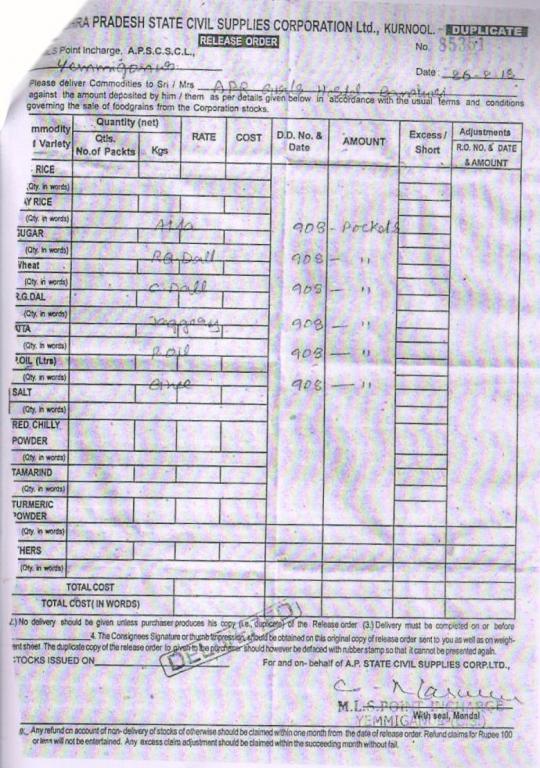 RA PRADESH STATE CIVIL SUPPLIES CORPORATION Ltd., KURNOOL. - DUPLICATE
RELEASE ORDER
No. 85351
LS Point Incharge, A.P.S.C.S.C.L.,
Yemmiganur
Date : 26-8-18
Please deliver Commodities to Sri / Mrs APR Girls Hostel - Banavasi
against the amount deposited by him / them as per details given below in accordance with the usual terms and conditions
governing the sale of foodgrains from the Corporation stocks.
mmodity Quantity (net) RATE COST D.D. No. & Date AMOUNT Excess / Short Adjustments
l Variety Qtls. No.of Packts Kgs R.O. NO. & DATE & AMOUNT
RICE
(Qty. in words)
AY RICE
(Qty. in words)
SUGAR Atta 908 - Pockets
(Qty. in words)
Wheat RG Dall 908 - "
(Qty. in words)
R.G.DAL C Dall 908 - "
(Qty. in words)
ATTA Jaggray 908 - "
(Qty. in words)
P.OIL (Ltrs) P.Oil 908 - "
(Qty. in words)
SALT Ghee 908 - "
(Qty. in words)
RED CHILLY
POWDER
(Qty. in words)
TAMARIND
(Qty. in words)
TURMERIC
POWDER
(Qty. in words)
THERS
(Qty. in words)
TOTAL COST
TOTAL COST( IN WORDS)
2.) No delivery should be given unless purchaser produces his copy (i.e., duplicate) of the Release order (3.) Delivery must be completed on or before
4. The Consignees Signature or thumb impression should be obtained on this original copy of release order sent to you as well as on weigh-
ent sheet. The duplicate copy of the release order to given to the purchaser should however be defaced with rubber stamp so that it cannot be presented again.
DELIVERED
STOCKS ISSUED ON For and on- behalf of A.P. STATE CIVIL SUPPLIES CORP.LTD.,
M.L.S. POINT INCHARGE
YEMMIGANUR
With seal, Mandal
Any refund on account of non- delivery of stocks of otherwise should be claimed within one month from the date of release order. Refund claims for Rupee 100
or less will not be entertained. Any excess claim adjustment should be claimed within the succeeding month without fail.